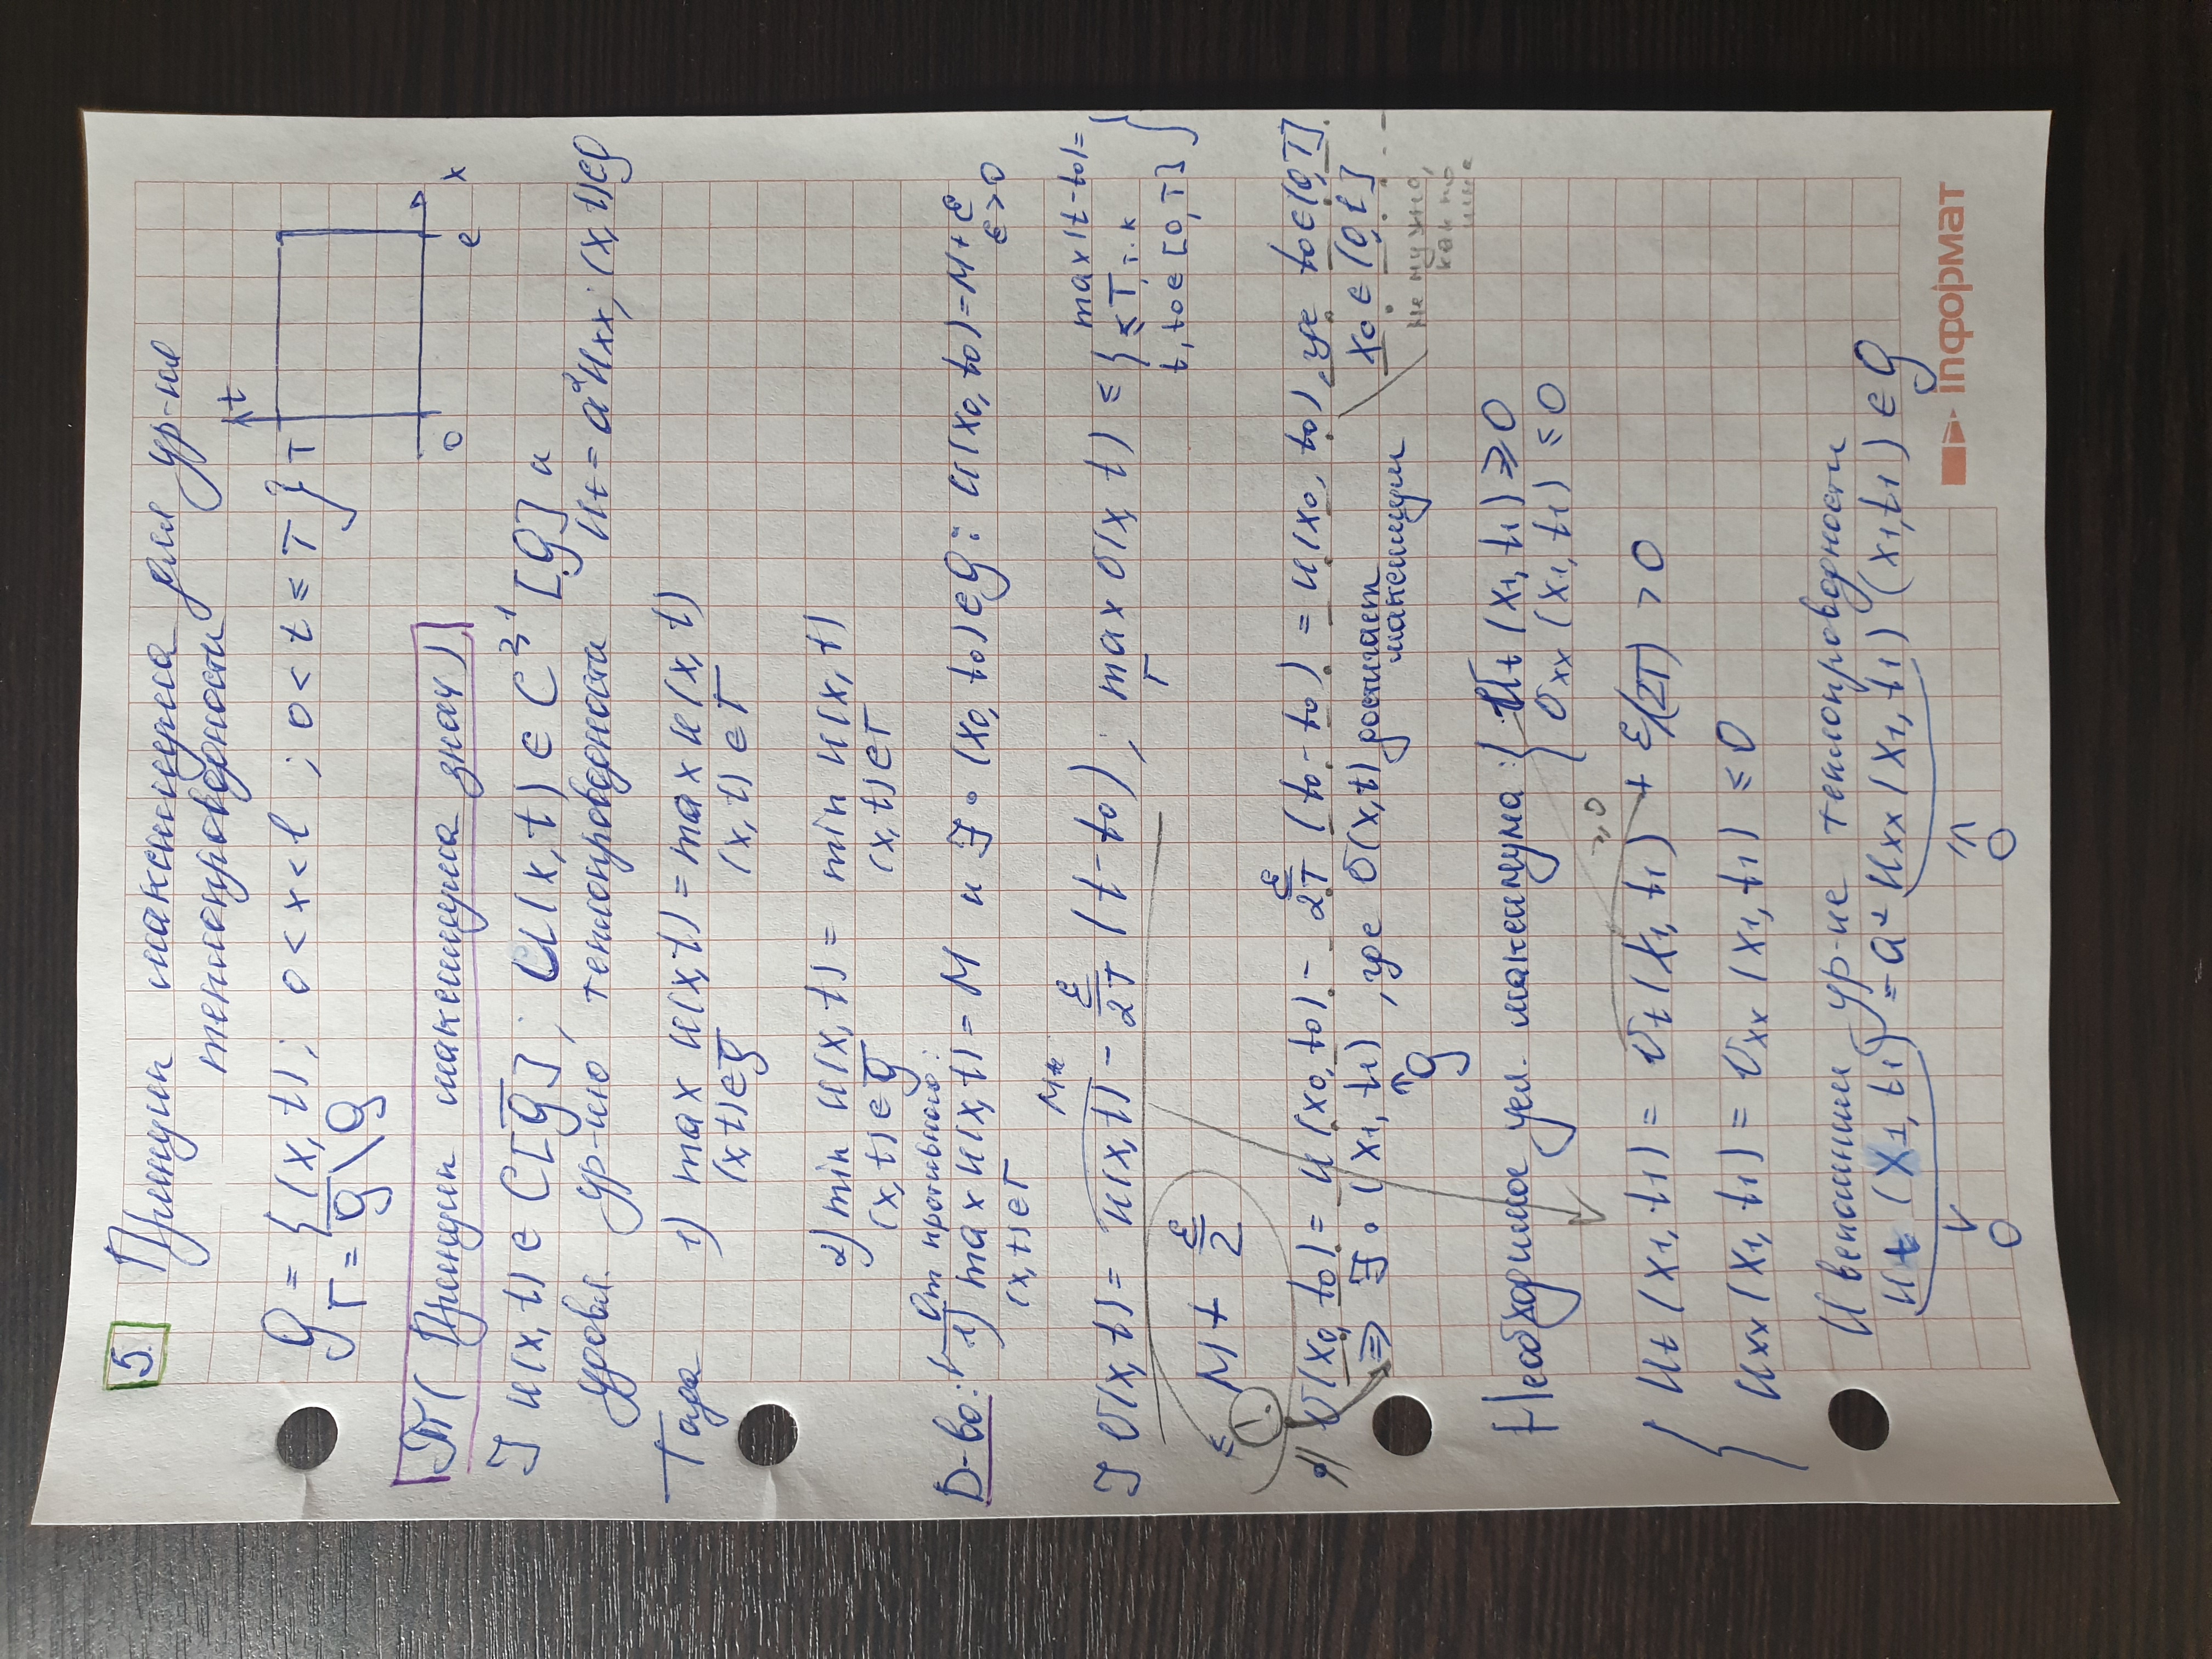 5. Принцип максимума для ур-ния
теплопроводности
g = { (x, t); 0 < x < l ; 0 < t ≤ T }
Γ = g̅ \ g
t
T
0
l
x
Т( Принцип максимума знач)
] u(x, t) ∈ C[g̅] ; u(x, t) ∈ C²˒¹ [g] и
удовл. ур-ию теплопроводности ut = a²uxx; (x, t)∈g
Тогда
1) max u(x, t) = max u(x, t)
(x, t)∈g̅ (x, t) ∈Γ
2) min u(x, t) = min u(x, t)
(x, t)∈g̅ (x, t)∈Γ
Д-во: От противного:
1) max u(x, t) = M и ∃ (x0, t0)∈g: u(x0, t0)=M+ε
(x, t)∈Γ ε>0
] v(x, t) = u(x, t) - ε/2T (t-t0) ; max v(x, t) ≤ { max|t-t0|=
Γ ≤ T, т.к
t, t0 ∈ [0, T] }
≤ M + ε/2
1.
v(x0, t0) = u(x0, t0) - ε/2T (t0-t0) = u(x0, t0), где t0∈(0,T].
x0 ∈ (0, l]
⇒ ∃ (x1, t1) , где v(x,t) достигает
максимум
∈ g
не нужно,
Необходимое усл. максимума: { vt (x1, t1) ≥ 0
vxx (x1, t1) ≤ 0
≥0
{ ut (x1, t1) = vt (x1, t1) + ε/(2T) > 0
uxx (x1, t1) = vxx (x1, t1) ≤ 0
И вспомним ур-ие теплопроводности
ut (x1, t1) = a² uxx (x1, t1) (x1, t1) ∈ g
∨ 0
≤ 0
inформат